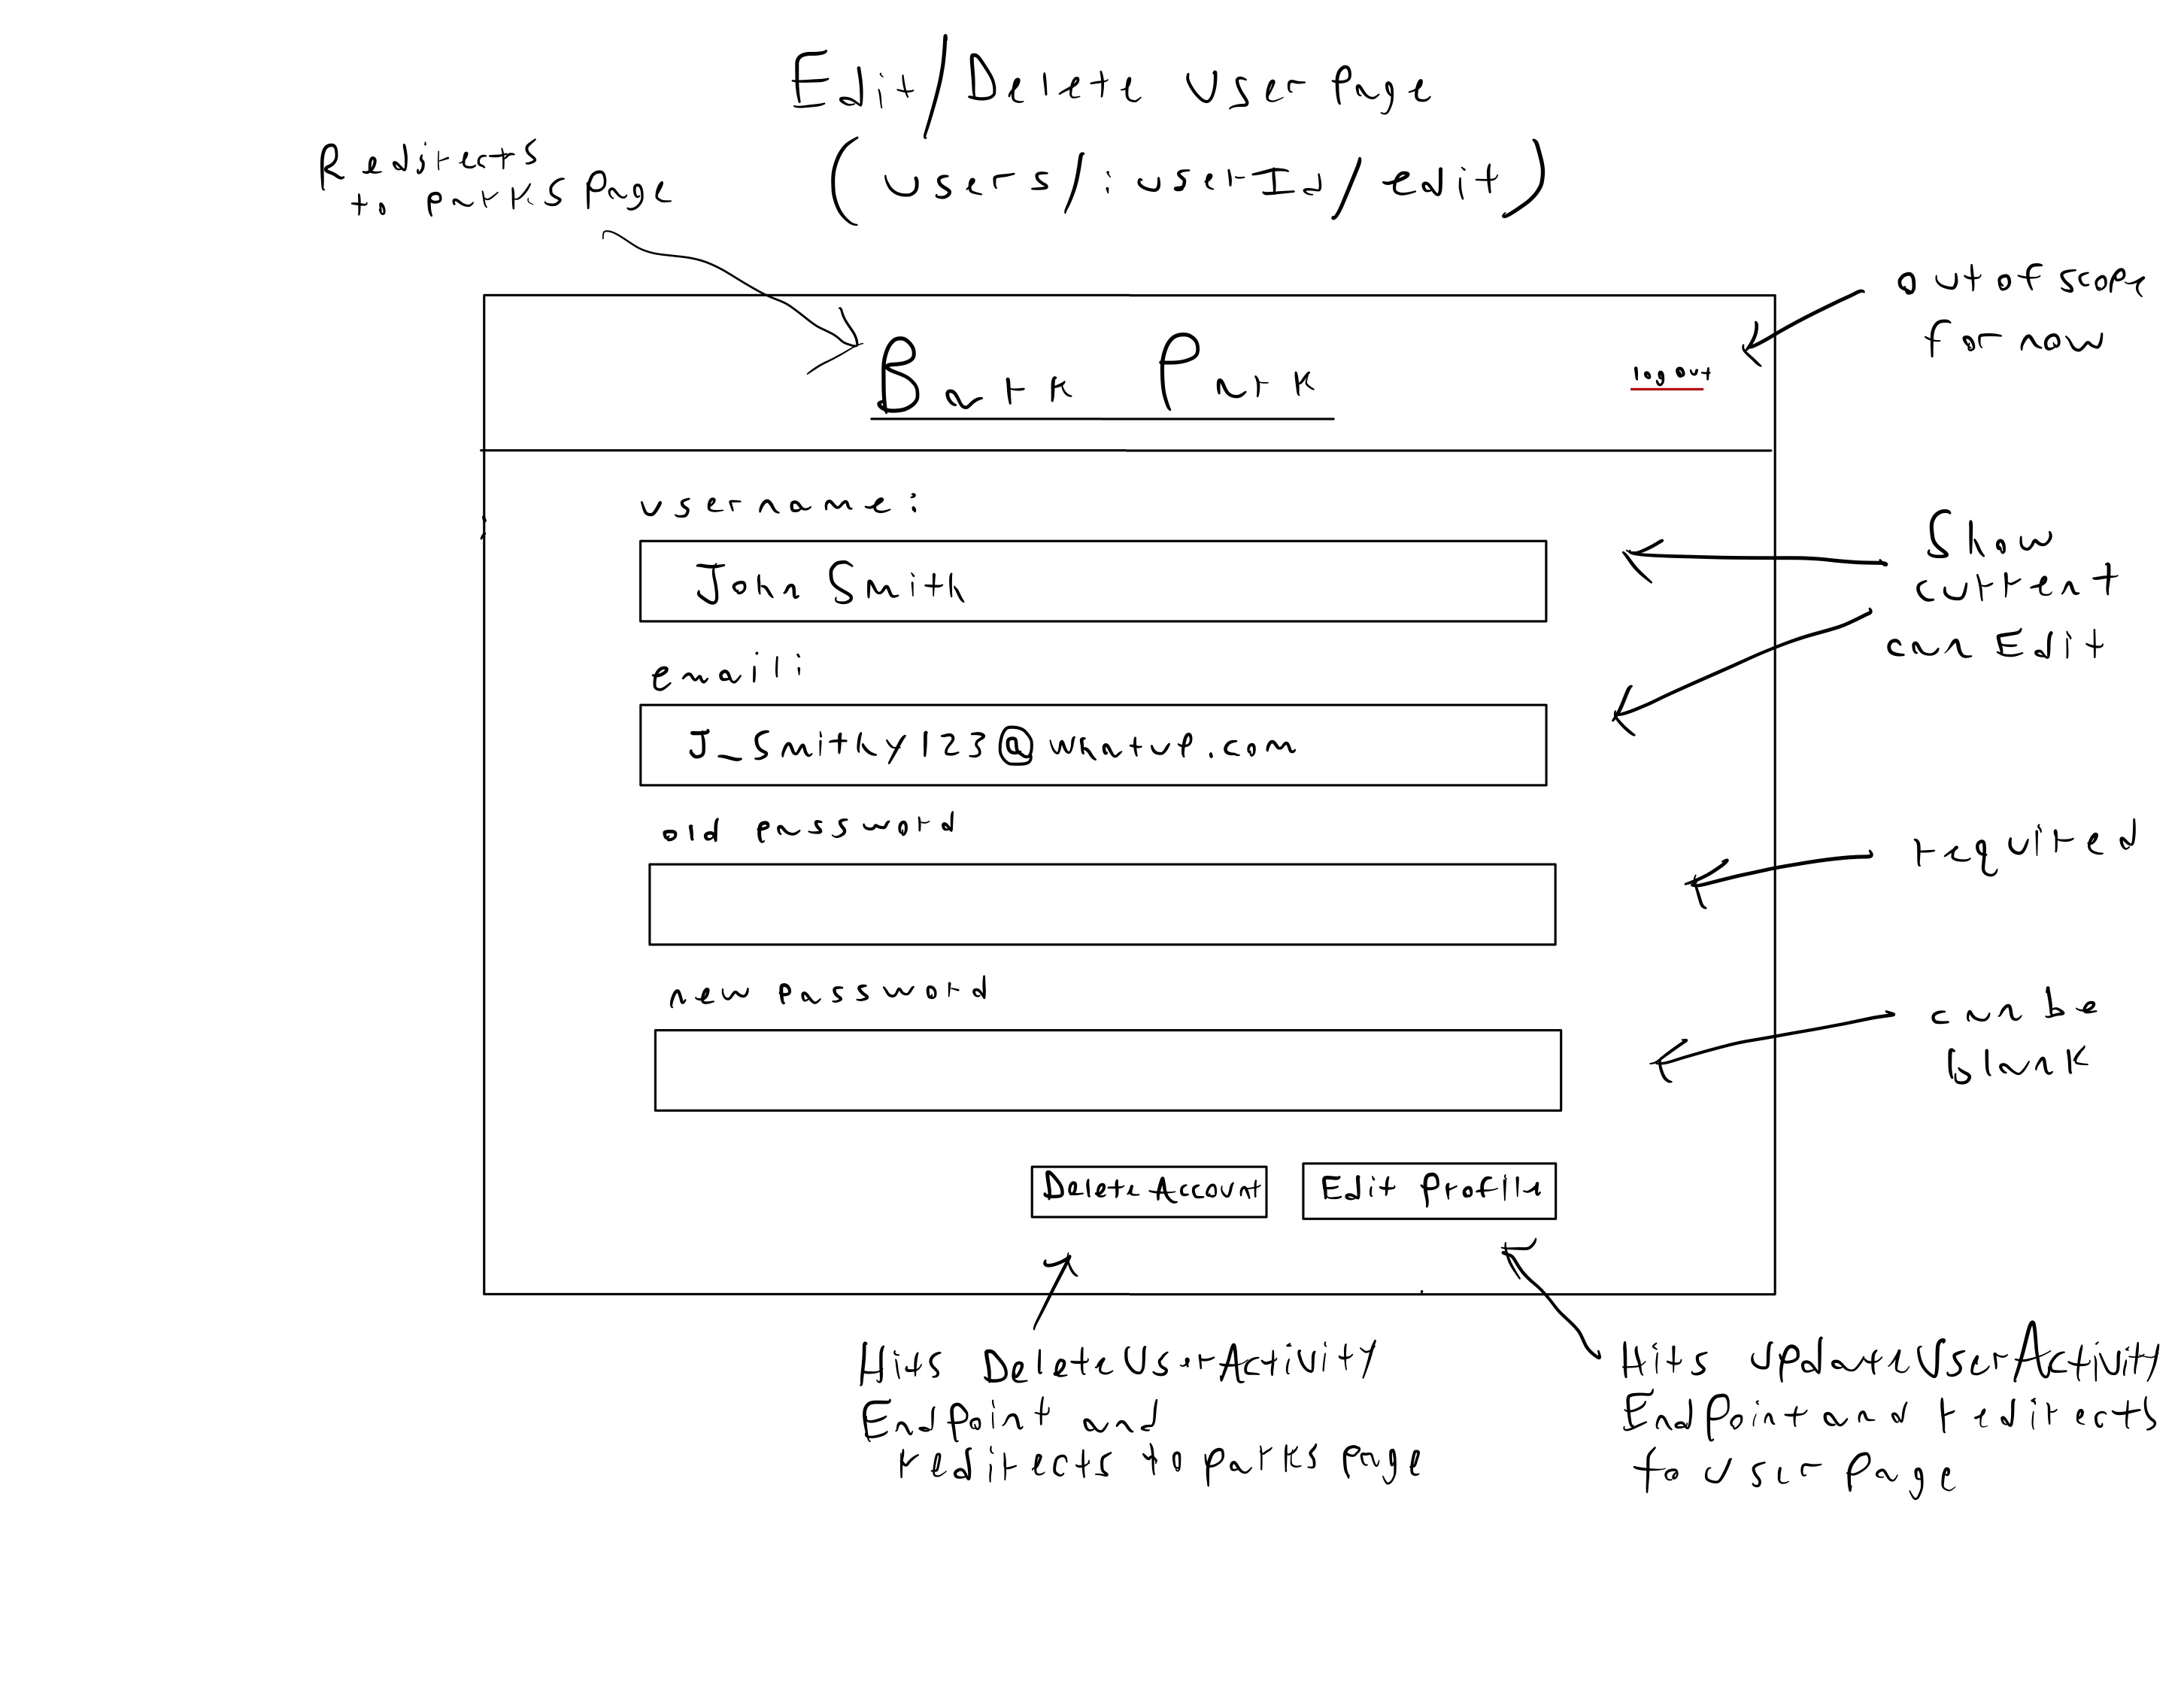 Edit/Delete User Page
(users/:userId/edit)
Redirects
to parks page
out of scope
for now
Bark Park
logout
username:
John Smith
Show
current
can Edit
email:
J_Smithy123@whatup.com
old password
required
new password
can be
blank
Delete Account
Edit Profile
Hits DeleteUserActivity
Endpoint and
redirects to parks page
Hits UpdateUserActivity
EndPoint and redirects
to user page